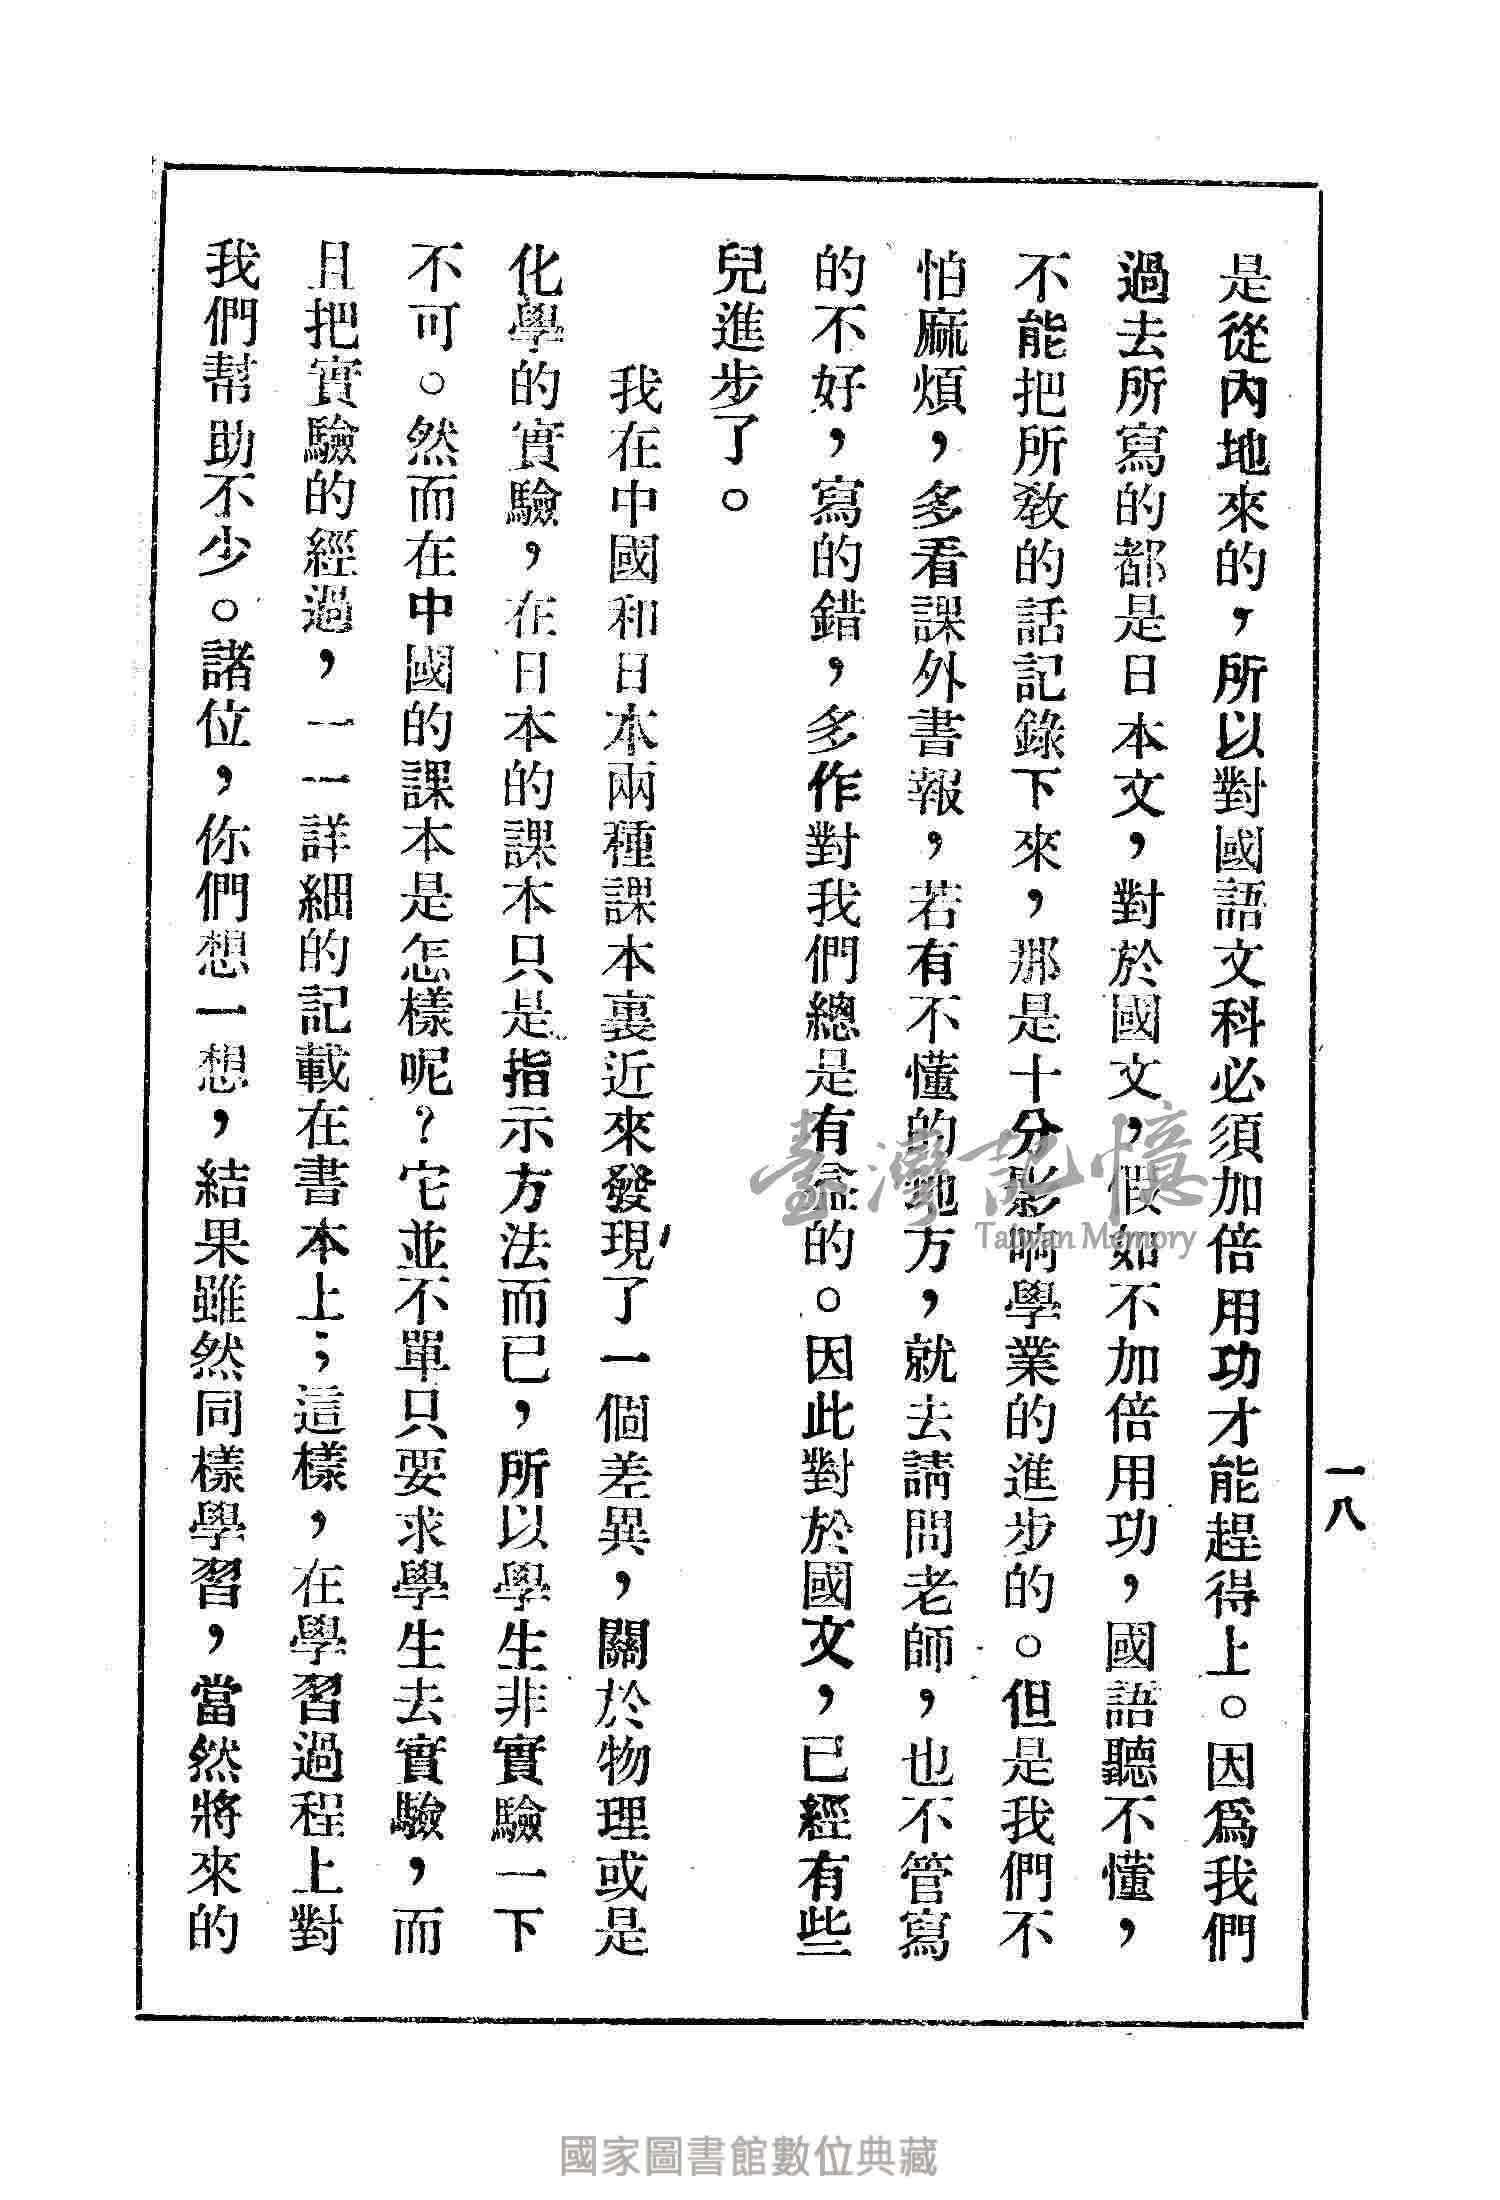 是從內地來的，所以對國語文科必須加倍用功才能趕得上。因爲我們
過去所寫的都是日本文，對於國文，假如不加倍用功，國語聽不懂，
不能把所教的話記錄下來，那是十分影响學業的進步的。但是我們不
怕麻煩，多看課外書報，若有不懂的地方，就去請問老師，也不管寫
的不好，寫的錯，多作對我們總是有益的。因此對於國文，已經有些
兒進步了。
我在中國和日本兩種課本裏近來發現了一個差異，關於物理或是
化學的實驗，在日本的課本只是指示方法而已，所以學生非實驗一下
不可。然而在中國的課本是怎樣呢？它並不單只要求學生去實驗，而
且把實驗的經過，一一詳細的記載在書本上；這樣，在學習過程上對
我們幫助不少。諸位，你們想一想，結果雖然同樣學習，當然將來的
一八
臺灣記憶
Taiwan Memory
國家圖書館數位典藏